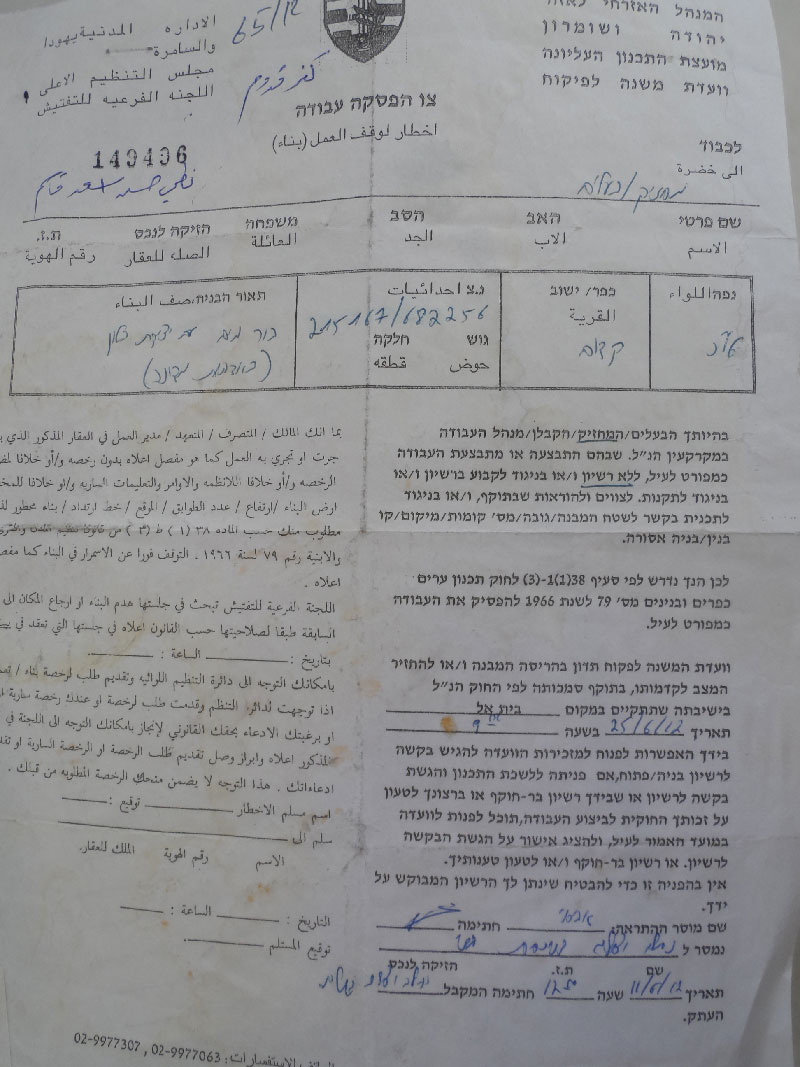 המנהל האזרחי לאזור
יהודה ושומרון
מועצת התכנון העליונה
וועדת משנה לפיקוח
الاداره المدنية يهودا
والسامرة
مجلس التنظيم الاعلى
اللجنه الفرعيه للتفتيش
65/12
كفر قدوم
צו הפסקה עבודה
اخطار لوقف العمل (بناء)
149496
לכבוד
الى حضرة
מחזיק/בעלים
שם פרטי האב הסב משפחה הזיקה לנכס ת.ז.
الاسم الاب الجد العائلة الصله للعقار رقم الهوية
נפה اللواء כפר/ ישוב נ.צ احداثيات תאור הבניה/صف البناء
القرية
215167/682256
גוש חלקה
حوض قطقه
קדום
בור מים
בהיותך הבעלים/המחזיק/הקבלן/מנהל העבודה
במקרקעין הנ"ל. שבהם התבצעה או מתבצעת העבודה
כמפורט לעיל, ללא רשיון ו/או בניגוד לקבוע ברשיון ו/או
בניגוד לתקנות. לצווים ולהוראות שבתוקף, ו/או בניגוד
לתכנית בקשר לשטח המבנה/גובה/מס' קומות/מיקום/קו
בנין/בניה אסורה.
לכן הנך נדרש לפי סעיף 38(1)-1(3) לחוק תכנון ערים
כפרים ובנינים מס' 79 לשנת 1966 להפסיק את העבודה
כמפורט לעיל.
וועדת המשנה לפקוח תדון בהריסת המבנה ו/או להחזיר
המצב לקדמותו, בתוקף סמכותה לפי החוק הנ"ל
בישיבתה שתתקיים במקום בית אל
תאריך 25/6/12 בשעה 9
בידך האפשרות לפנות למזכירות הוועדה להגיש בקשה
לרשיון בניה/פתוח, אם פניתה ללשכת התכנון והגשת
בקשה לרשיון או שבידך רשיון בר-תוקף או ברצונך לטעון
על זכותך החוקית לביצוע העבודה, תוכל לפנות לוועדה
במועד האמור לעיל, ולהציג אישור על הגשת הבקשה
לרשיון. או רשיון בר-תוקף ו/או לטעון טענותיך.
אין בהפניה זו כדי להבטיח שינתן לך הרשיון המבוקש על
ידך.
שם מוסר ההתראה חתימה
נמסר ל
שם ת.ז. הזיקה לנכס
תאריך 11/6/12 שעה 1250 חתימה המקבל
העתק.
بما انك المالك / المتصرف / المتعهد / مدير العمل في العقار المذكور الذي
جرت او تجري به العمل كما هو مفصل اعلاه بدون رخصه و/أو خلافا
الرخصه و/أو خلافا للانظمه والاوامر والتعليمات الساريه و/او خلافا
ارض البناء /ارتفاع / عدد الطوابق / الموقع / خط ارتداد / بناء محظور
مطلوب منك حسب الماده ٣٨ (١) ط (٣) من قانون تنظيم المدن والقرى
والابنية رقم ٧٩ لسنة ١٩٦٦ . التوقف فورا عن الاسمرار في البناء كما
اعلاه .
اللجنة الفرعية للتفتيش تبحث في جلستها هدم البناء او ارجاع المكان الى
السابقة طبقا لصلاحيتها حسب القانون اعلاه في جلستها التي تعقد في
بتاريخ : الساعة :
بامكانك التوجه الى دائرة التنظيم اللوائيه وتقديم طلب لرخصة بناء /
اذا توجهت لدائرة التنظم وقدمت طلب لرخصة او عندك رخصة سارية
او برغبتك الادعاء بحقك القانوني لإنجاز بامكانك التوجه الى اللجنة في
المذكور اعلاه وابراز وصل تقديم طلب الرخصة او الرخصة السارية او
ادعاءاتك . هذا التوجه لا يضمن منحك الرخصة المطلوبه من قبلك .
اسم مسلم الاخطار توقيع :
سلم الى
الاسم رقم الهوية الملك للعقار.
التاريخ : الساعة :
توقيع المستلم
02-9977307 , 02-9977063 :